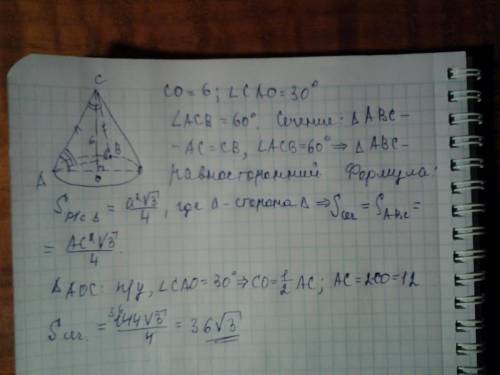 C
6
A
B
O
CO=6; ∠CAO=30°
∠ACB=60°. Сечение: ΔABC-
-AC=CB, ∠ACB=60°⇒ΔABC-
равносторонний Формула:
S р/с Δ = a²√3/4, где a-сторона Δ ⇒ Sсеч = S ABC =
= AC²√3/4.
ΔAOC: п/у, ∠CAO=30°⇒CO=1/2 AC; AC=2CO=12
Sсеч. = 144√3/4 = 36√3
36